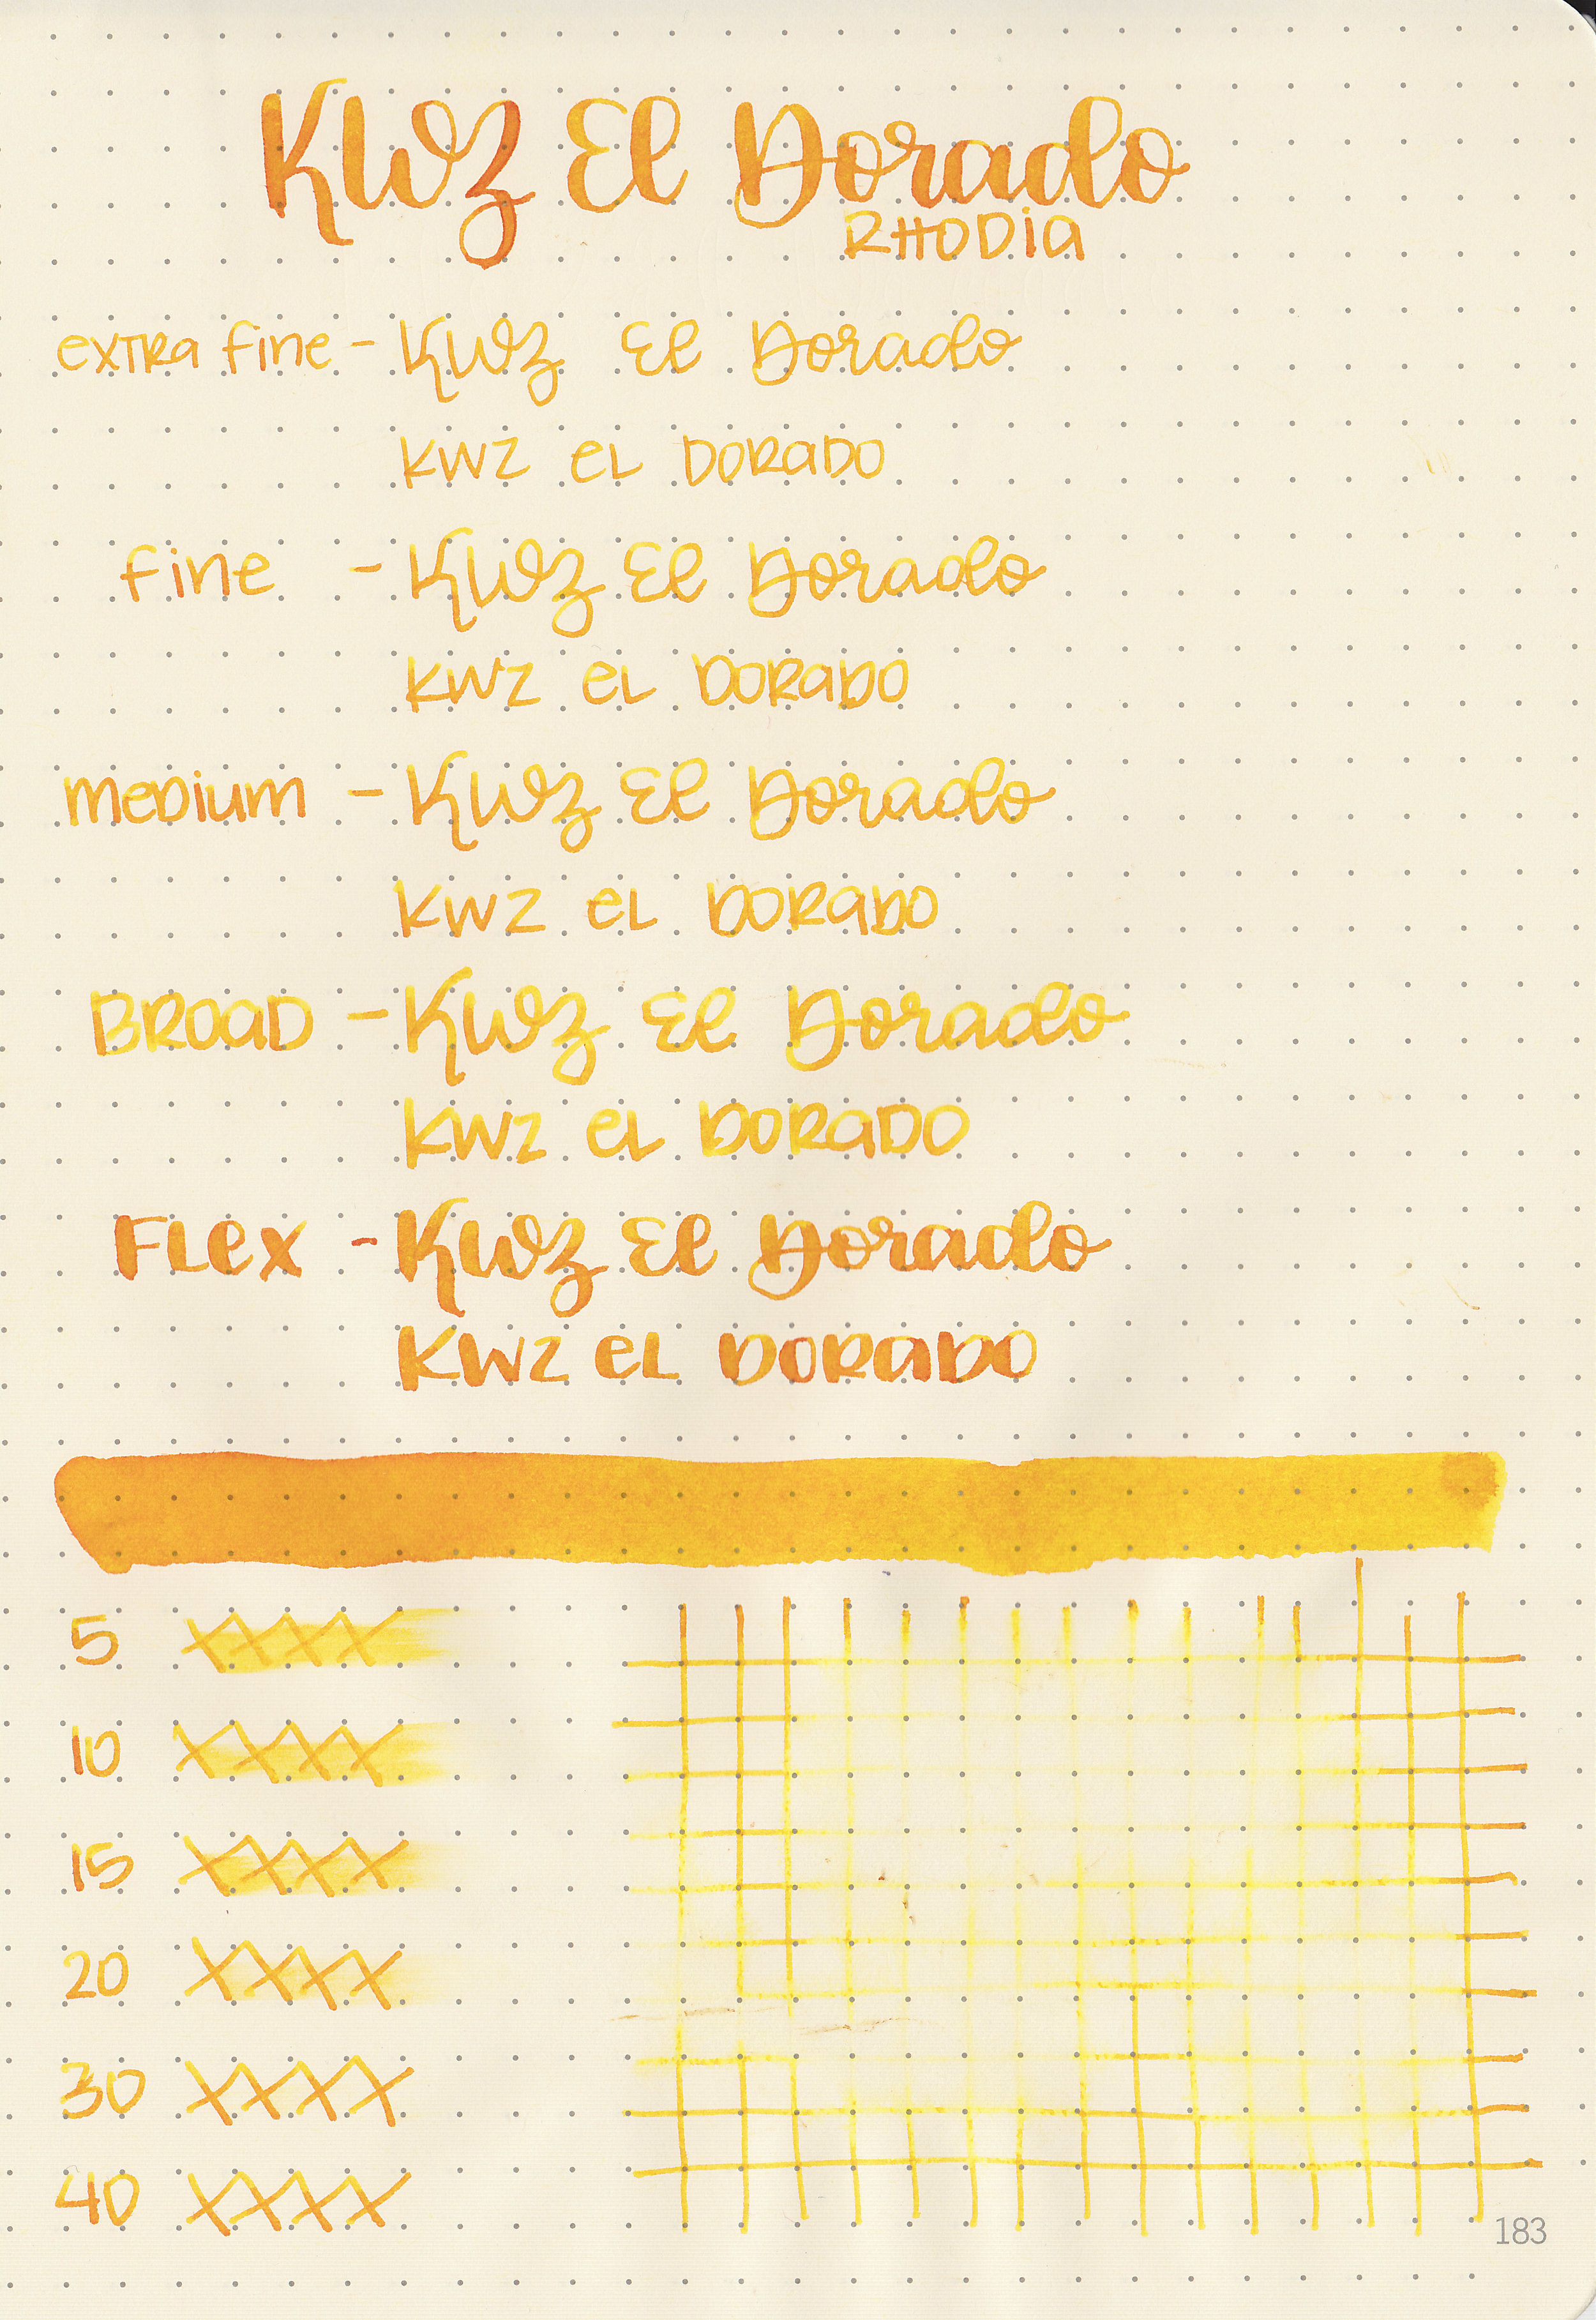 KWZ El Dorado
RHODIA
extra fine - KWZ El Dorado
KWZ eL DORADO
fine - KWZ El Dorado
KWZ eL DORADO
meDium - KWZ El Dorado
KWZ eL DORADO
BROAD - KWZ El Dorado
KWZ eL DORADO
FLex - KWZ El Dorado
KWZ eL DORADO
5 XXXX
10 XXXX
15 XXXX
20 XXXX
30 XXXX
40 XXXX
183